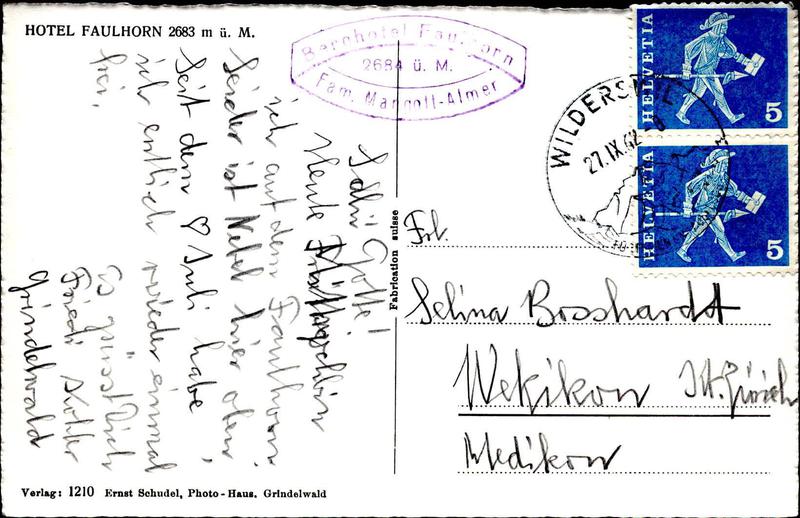 HOTEL FAULHORN 2683 m ü. M.
Berghotel Faulhorn
2684 ü. M.
Fam. Margott-Almer
Gotte!
Heute
ich auf dem Faulhorn.
Leider ist Nebel hier oben,
Seit dem ♡ Juli habe
ich entlich wieder einmal
frei.
Es grüsst Dich
Friedi
Grindelwald
Verlag: 1210 Ernst Schudel, Photo-Haus, Grindelwald
Fabrication suisse
WILDERSWIL
27.IX.62
HELVETIA 5
HELVETIA 5
Frl.
Selina Bosshardt
Wetzikon Kt. Zürich
Medikon